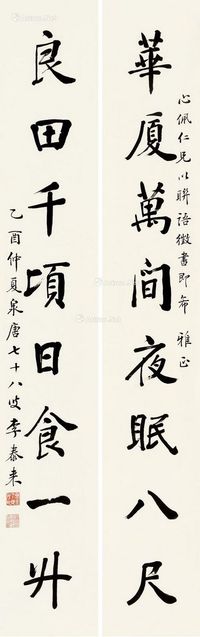 心佩仁兄以联語徵書即希 雅正
華厦萬间夜眠八尺
良田千頃日食一升
乙酉仲夏泉唐七十八叟李泰来